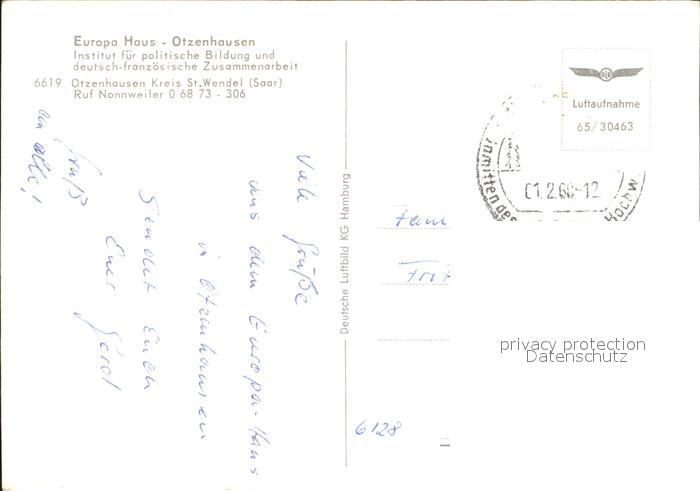 Europa Haus - Otzenhausen
Institut für politische Bildung und
deutsch-französische Zusammenarbeit
6619 Otzenhausen Kreis St. Wendel (Saar)
Ruf Nonnweiler 0 68 73 - 306
Viele Grüße
aus dem Europa-Haus
in Otzenhausen
Sendet Euch
Euer Gerd
Gruß
an alle!
Deutsche Luftbild KG Hamburg
Luftaufnahme
65/30463
inmitten des
Hochw
01.2.68-12
Fam
6128
privacy protection
Datenschutz